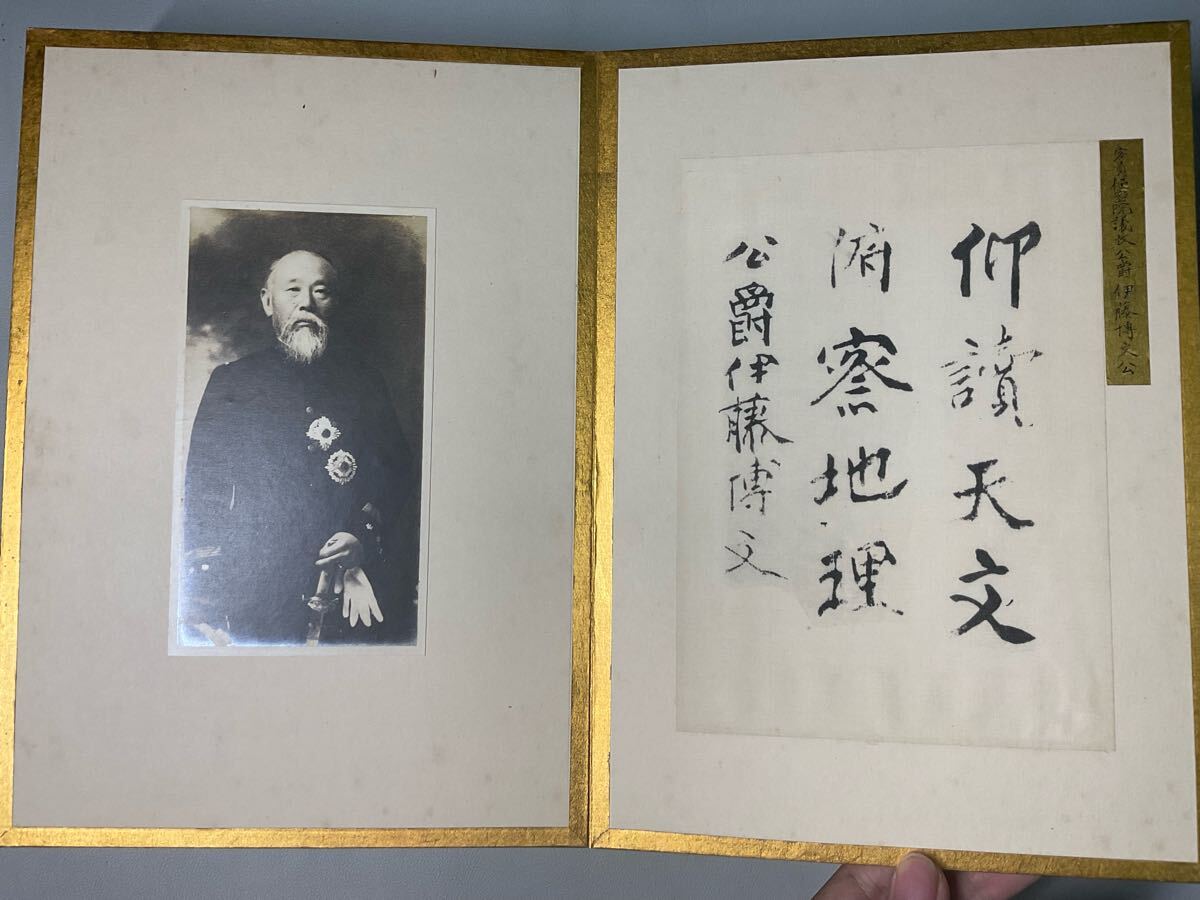 院議長公爵伊藤博文公
仰讀天文
俯察地理
公爵伊藤博文